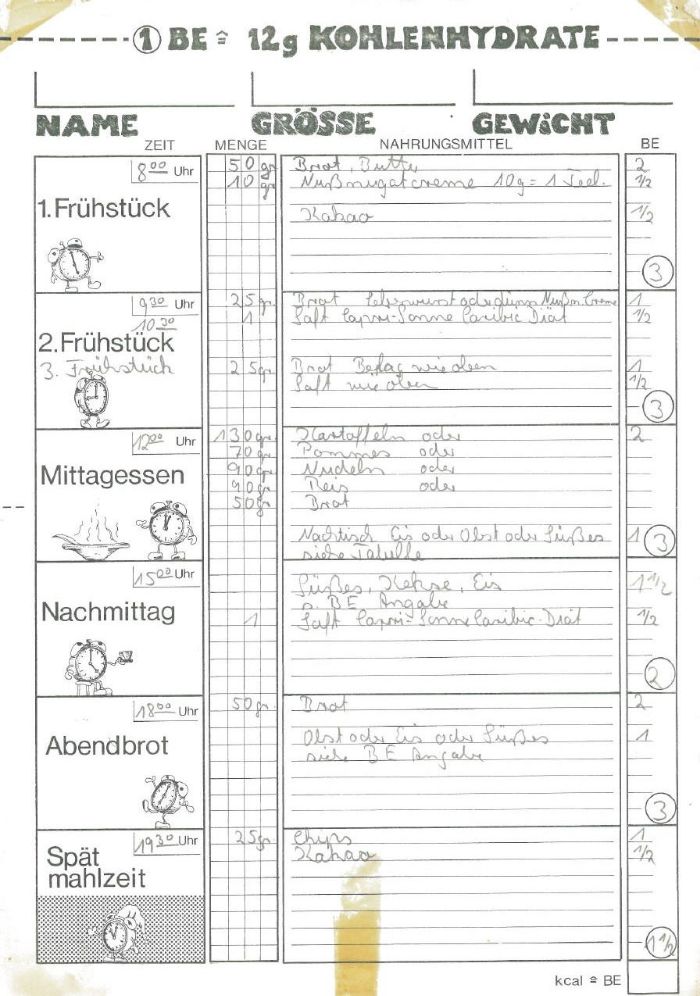 ① BE ≙ 12g KOHLENHYDRATE
NAME GRÖSSE GEWiCHT
ZEIT MENGE NAHRUNGSMITTEL BE
8⁰⁰ Uhr 50 gr Brot, Butter 2
10 gr Nußnugatcreme 10g = 1 Teel. 1/2
1.Frühstück Kakao 1/2
3
9³⁰ Uhr 25 gr Brot Leberwurst oder dünn Nußn. Creme 1
10³⁰ 1 Saft Capri-Sonne Caribic Diät 1/2
2.Frühstück
3. Frühstück 25 gr Brot Belag wie oben 1
Saft wie oben 1/2
3
12⁰⁰ Uhr 130 gr Kartoffeln oder 2
70 gr Pommes oder
Mittagessen 90 gr Nudeln oder
90 gr Reis oder
50 gr Brot
Nachtisch Eis oder Obst oder Süßes 1 3
siehe Tabelle
15⁰⁰ Uhr Süßes, Kekse, Eis 1 1/2
s. BE Angabe
Nachmittag 1 Saft Capri-Sonne Caribic-Diät 1/2
2
18⁰⁰ Uhr 50 gr Brot 2
Abendbrot Obst oder Eis oder Süßes 1
siehe BE Angabe
3
19³⁰ Uhr 25 gr Chips 1
Spät Kakao 1/2
mahlzeit
1 1/2
kcal ≙ BE